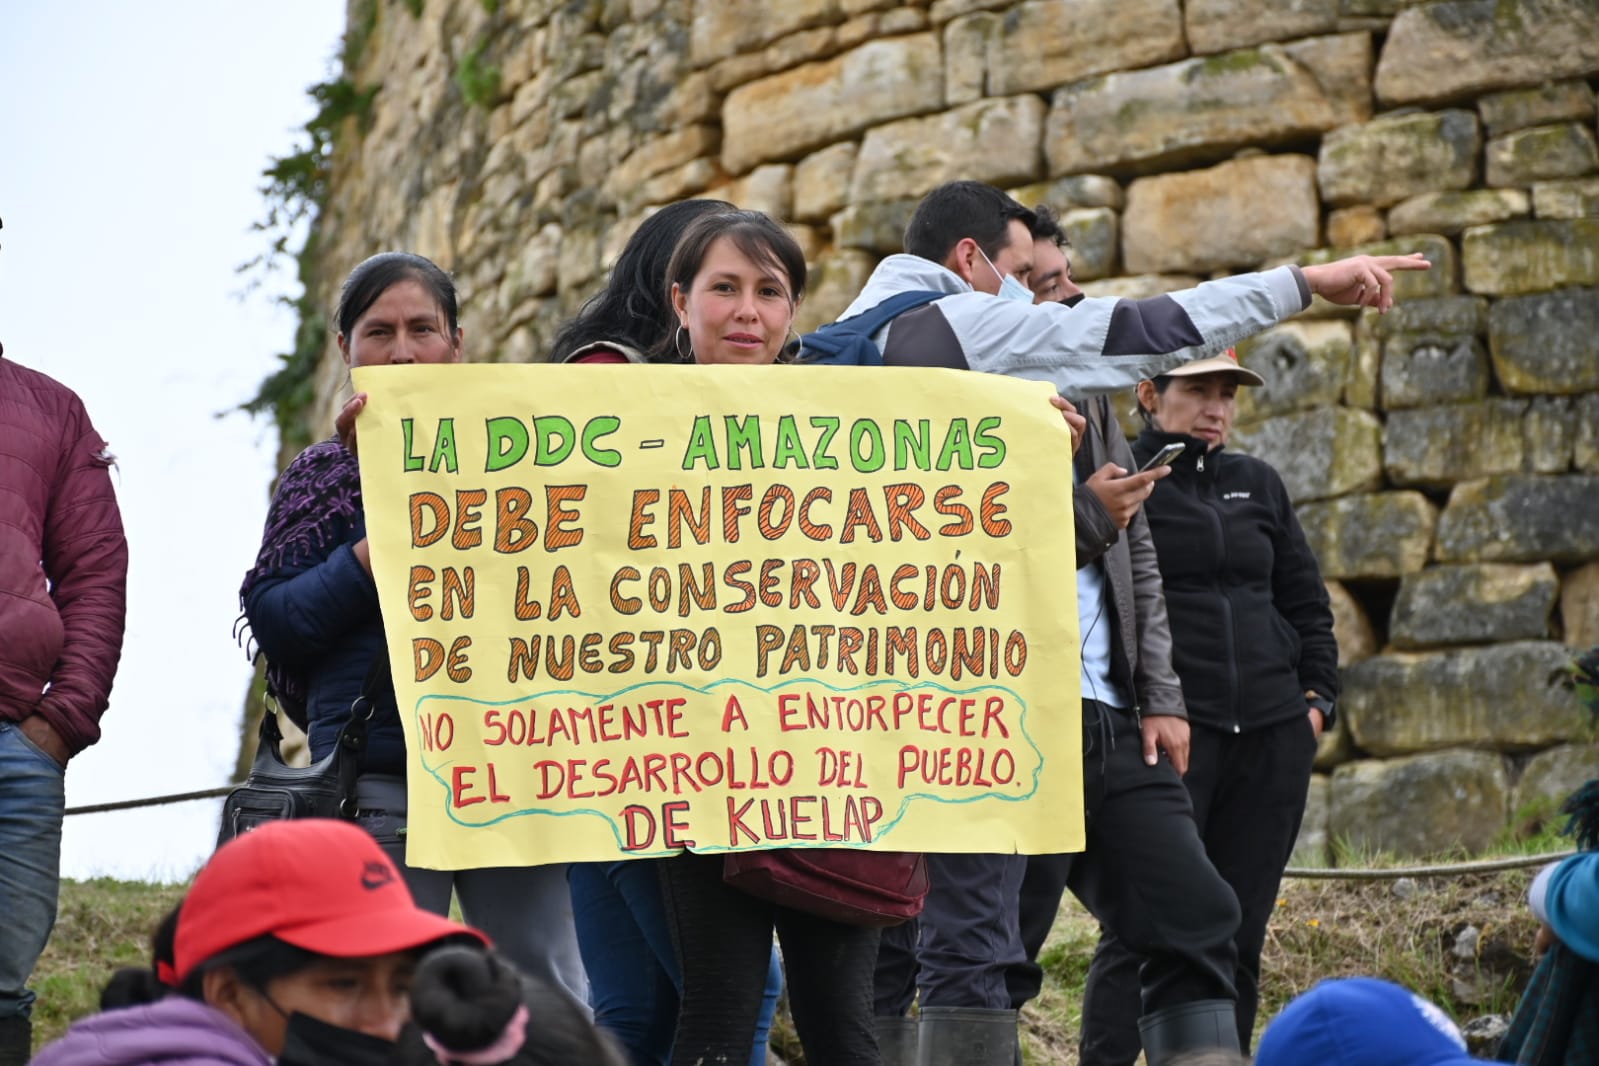 LA DDC - AMAZONAS
DEBE ENFOCARSE
EN LA CONSERVACIÓN
DE NUESTRO PATRIMONIO
NO SOLAMENTE A ENTORPECER
EL DESARROLLO DEL PUEBLO.
DE KUELAP